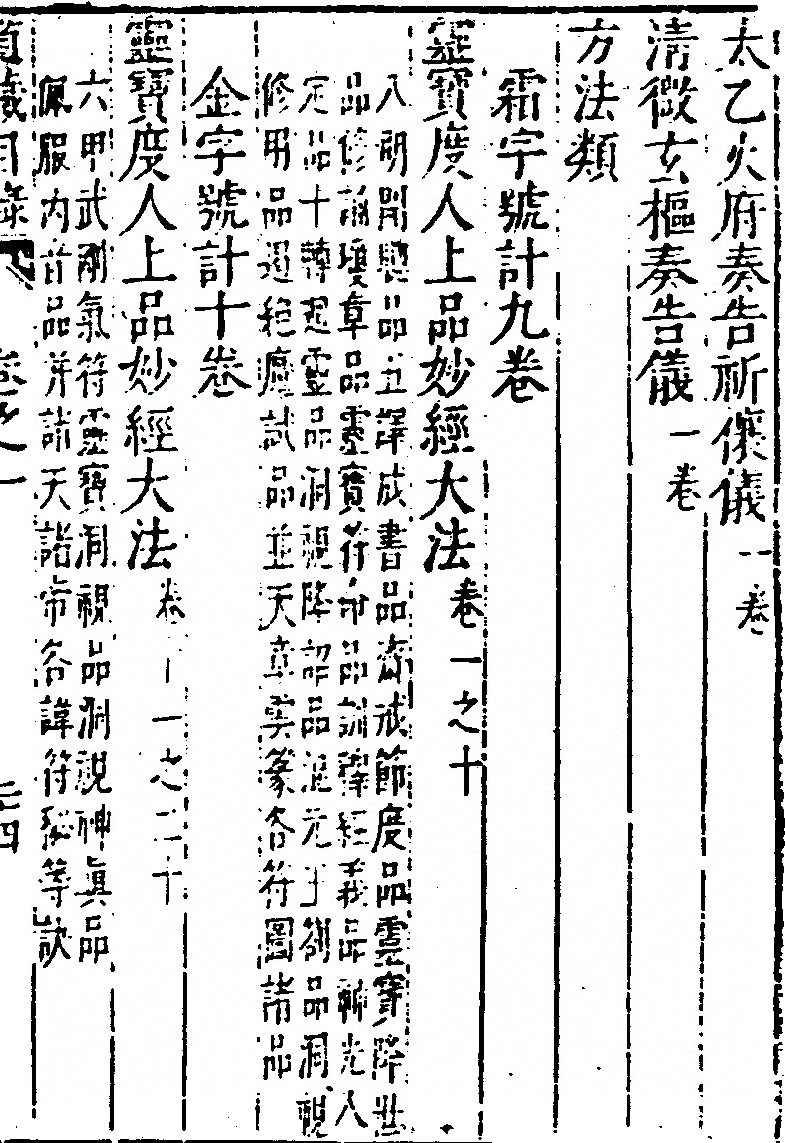 太乙火府奏告祈禳儀一卷
清微玄樞奏告儀一卷
方法類
霜字號計九卷
靈寶度人上品妙經大法卷一之十
八朗開品五譯成書品齋戒節度品靈寶降世
品修誦瓊章品靈寶符命品訓釋經義品光八
定品十轉迴靈品洞視降詔品混元玉劄品洞視
修用品過魔試品並天章雲篆各符圖諸品
金字號計十卷
靈寶度人上品妙經大法卷十一之二十
六甲武剛氣符靈寶洞視品洞視神真品
佩服內音品并諸天諸帝名諱符秘等訣
道藏目錄 卷之一 二四